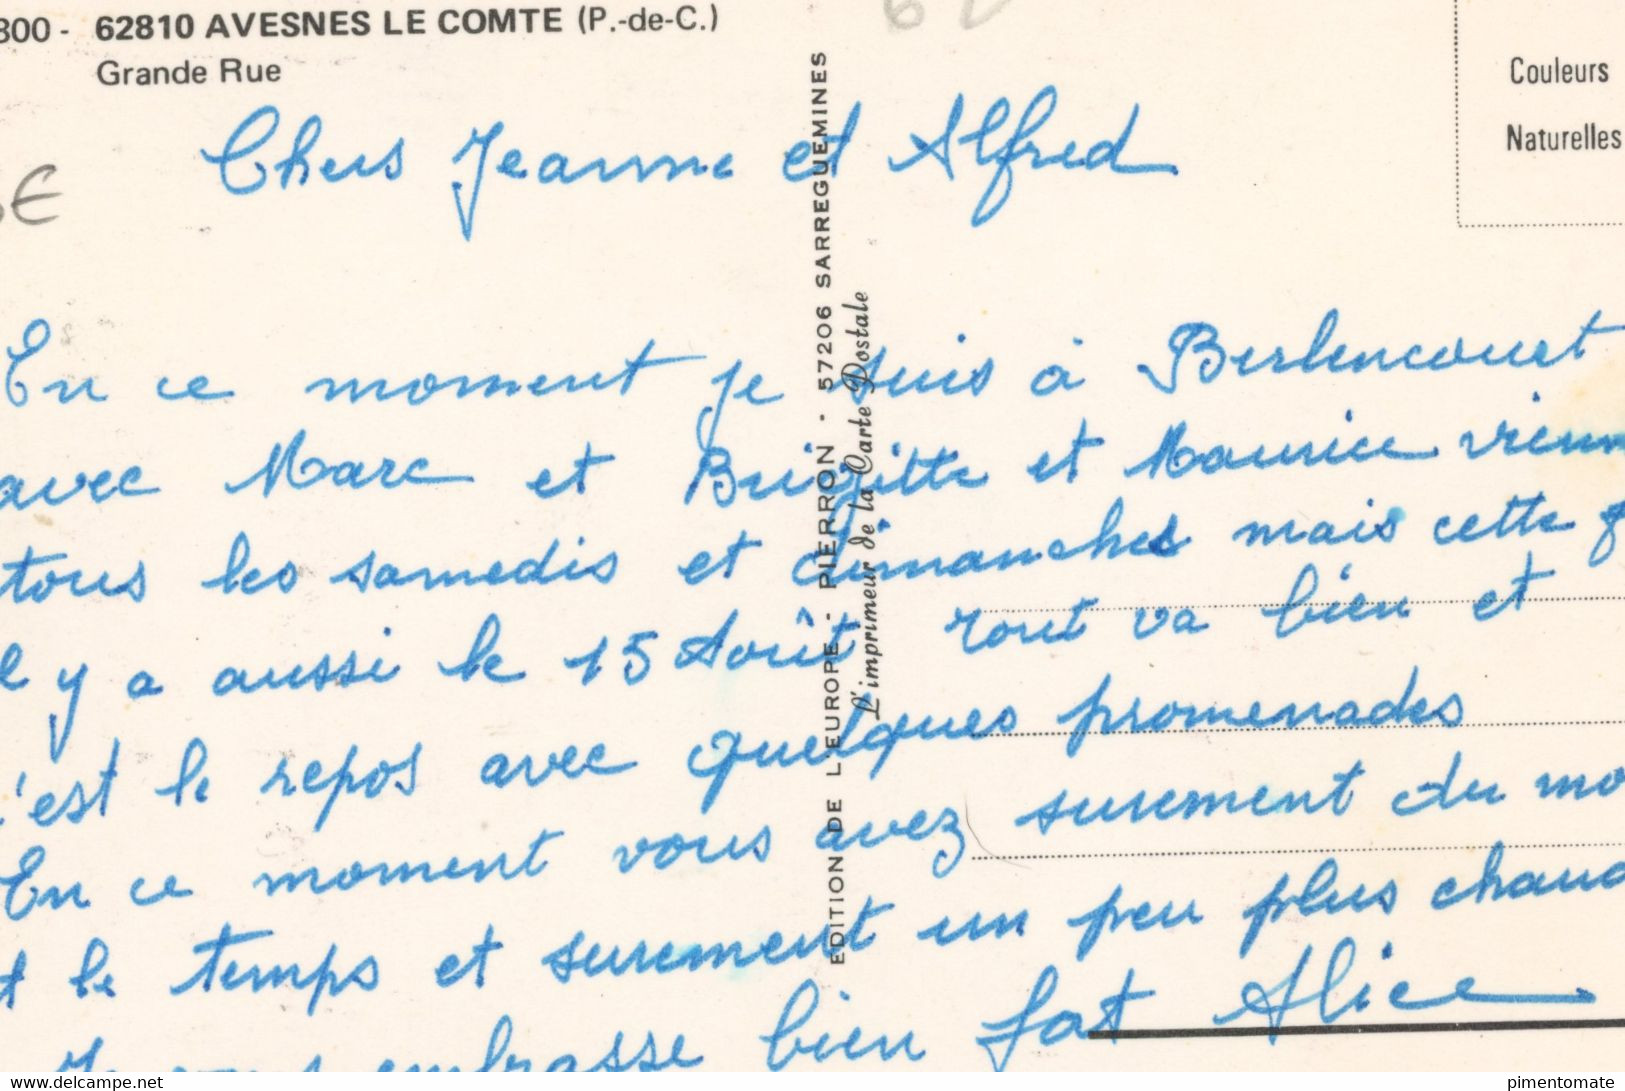 800 - 62810 AVESNES LE COMTE (P.-de-C.)
Grande Rue
Couleurs
Naturelles
Chers Jeanne et Alfred
En ce moment je suis à Berlencourt
avec Marc et Brigitte et Maurice vienn
tous les samedis et dimanches mais cette f
l y a aussi le 15 Août tout va bien et
c'est le repos avec quelques promenades
En ce moment vous avez surement du mo
t le temps et surement un peu plus chaud
Je vous embrasse bien fort Alice
EDITION DE L'EUROPE - PIERRON - 57206 SARREGUEMINES
L'imprimeur de la Carte Postale
delcampe.net
pimentomate